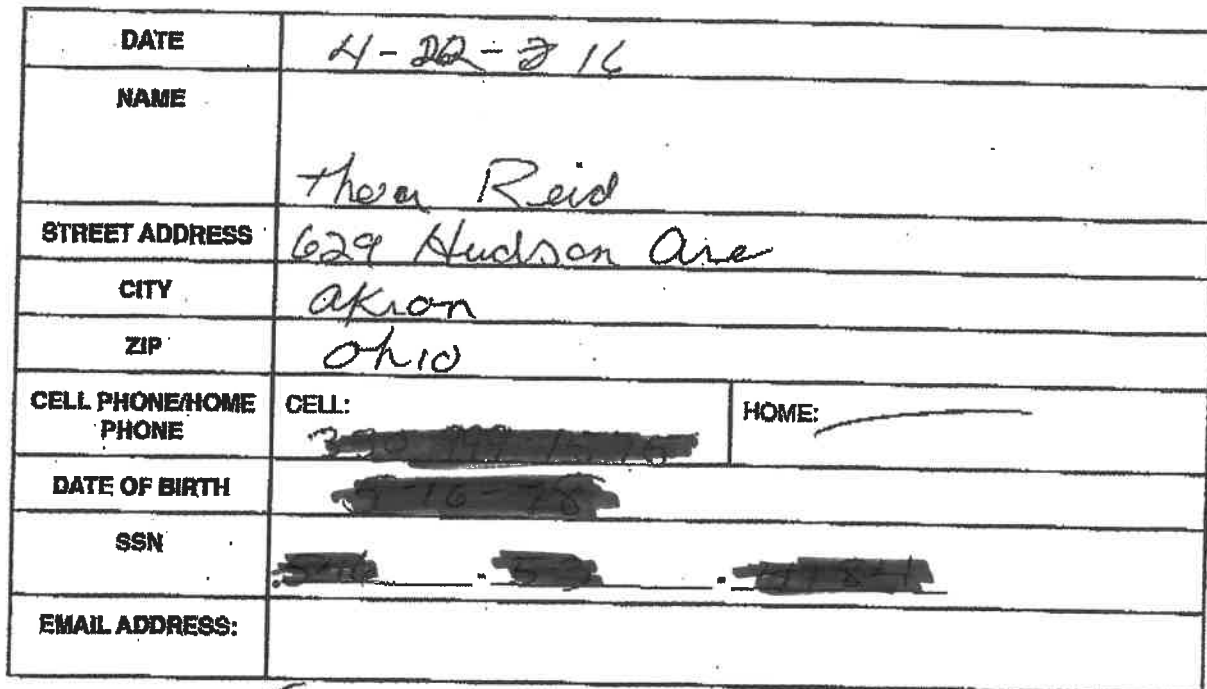 DATE 4-22-2 16
NAME
Thera Reid
STREET ADDRESS 629 Hudson Ave
CITY Akron
ZIP Ohio
CELL PHONE/HOME PHONE CELL: HOME:
DATE OF BIRTH
SSN - -
EMAIL ADDRESS: